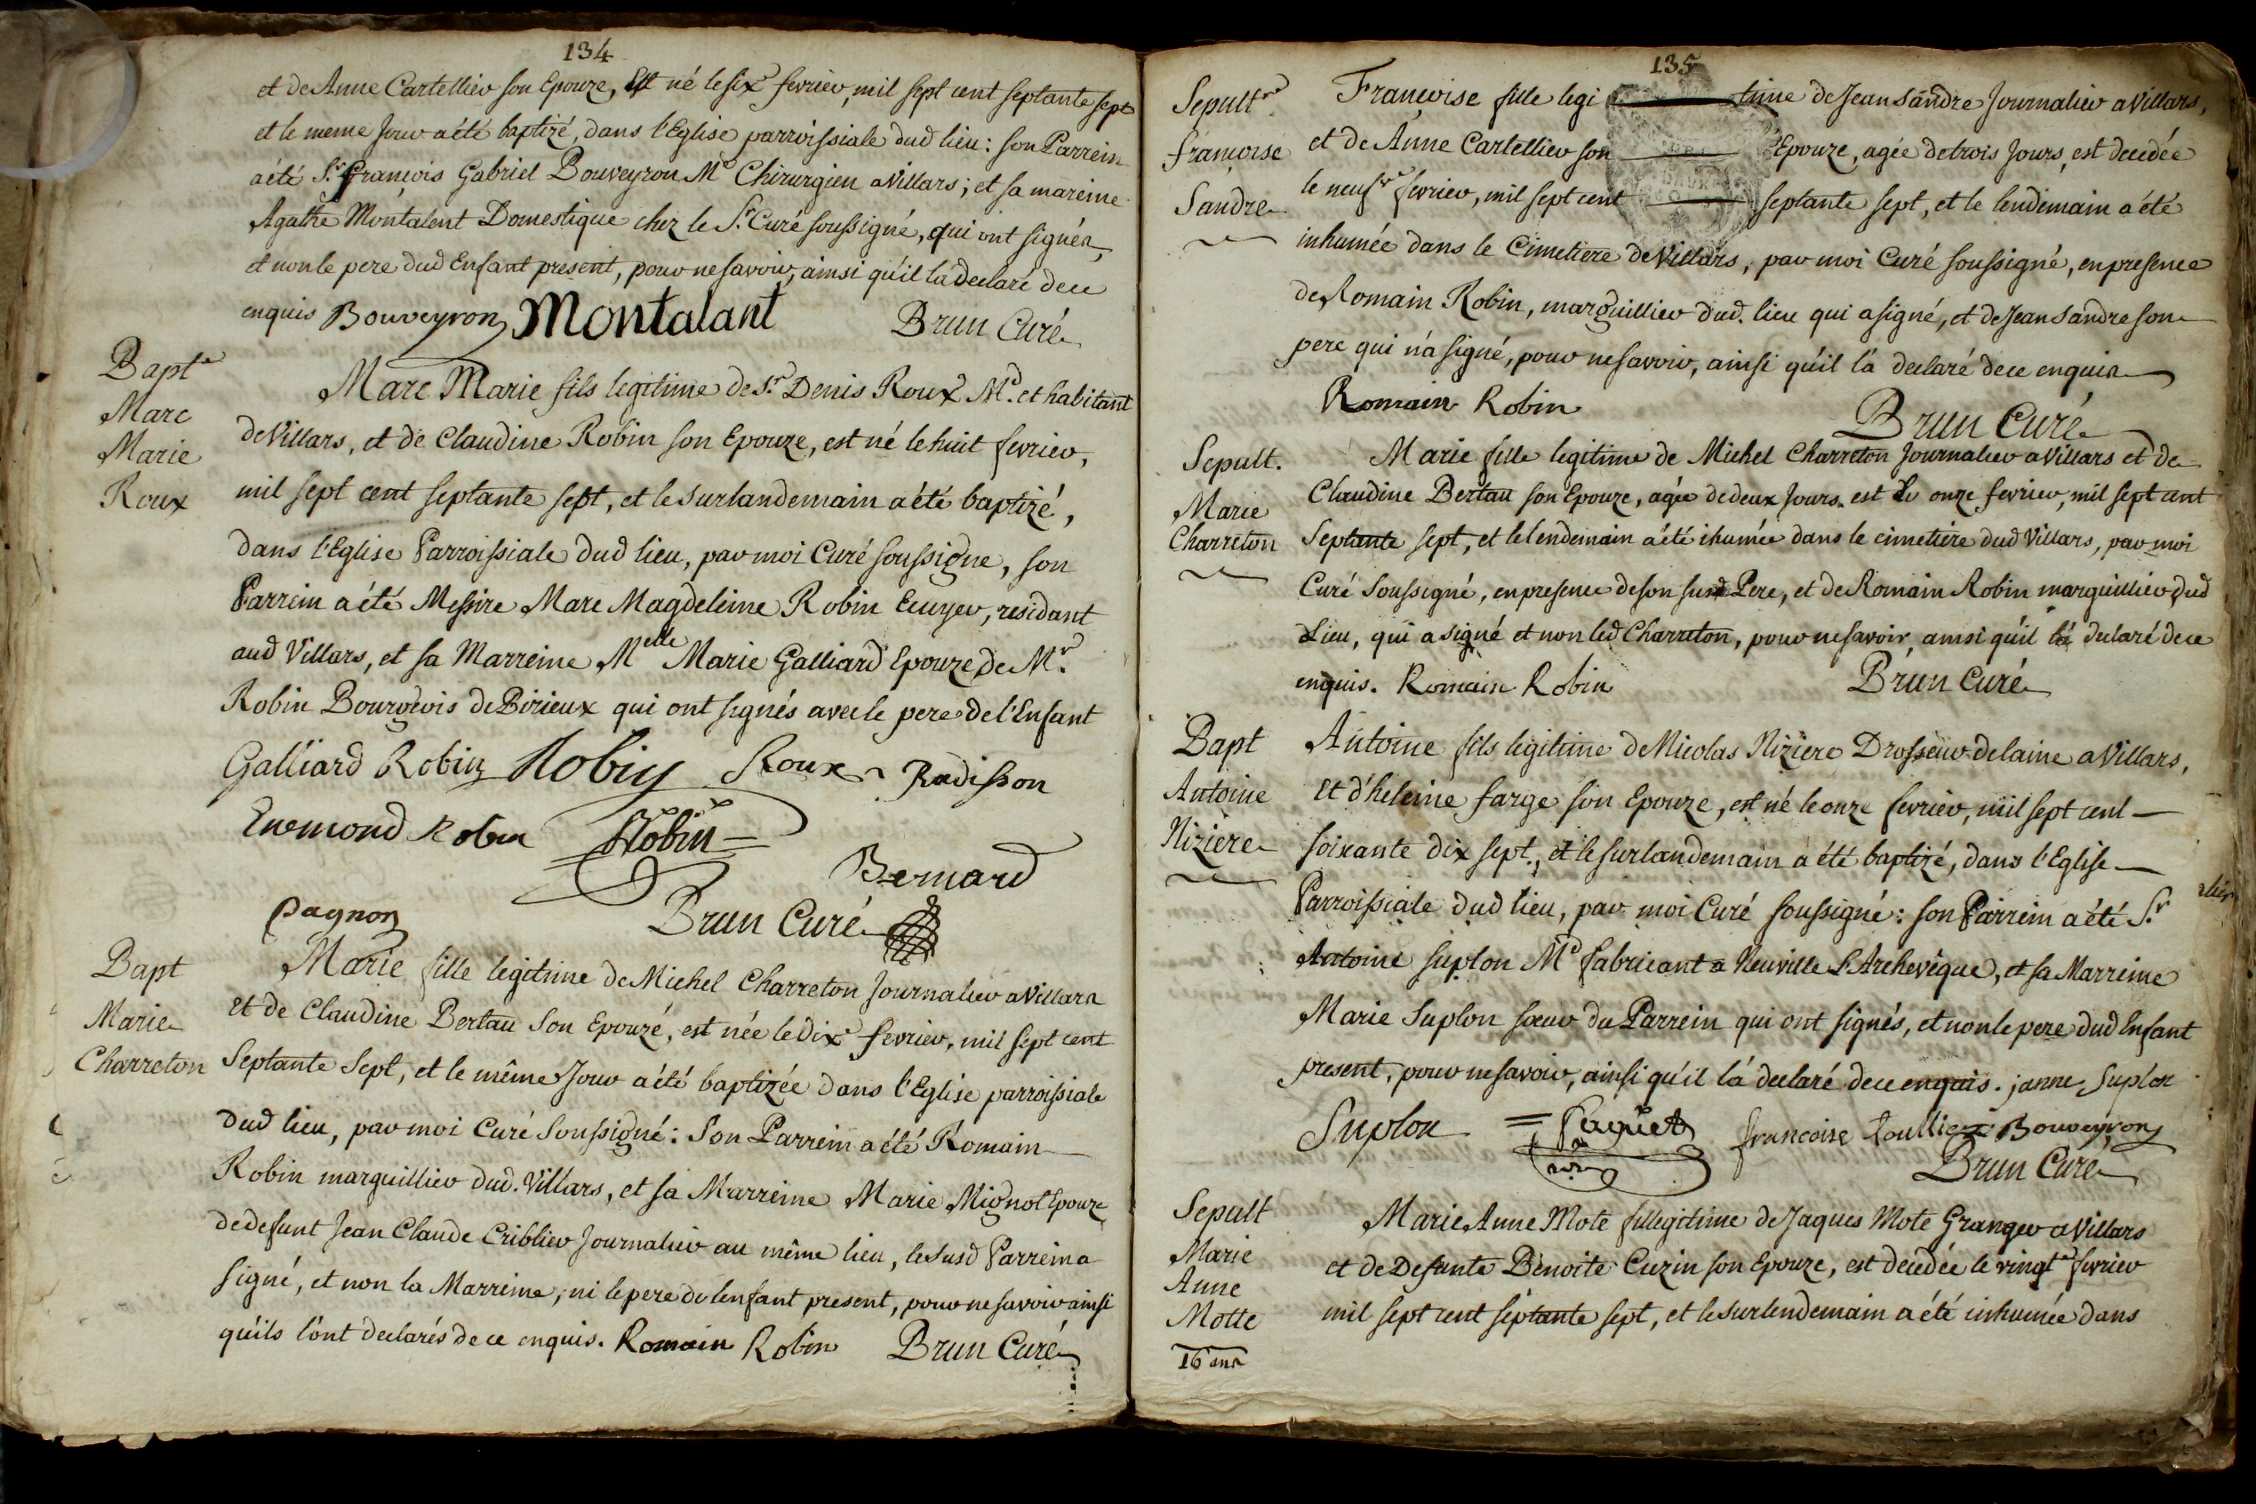 134
et de Anne Cartellier son Epouze, Est né le six fevrier, mil sept cent septante sept
et le meme Jour a été baptizé, dans l'Eglise parroissiale dud lieu : son Parrein
a été Sr. François Gabriel Bouveyron Me Chirurgien a Villars ; et sa mareine
Agathe Montalent Domestique chez le Sr. Curé soussigné, qui ont signés,
et non le pere dud Enfant present, pour ne savoir, ainsi qu'il la declaré de ce
enquis Bouveyron Montalant Brun Curé
Bapte
Marc
Marie
Roux
Marc Marie fils legitime de Sr. Denis Roux Md. et habitant
de Villars, et de Claudine Robin son Epouze, est né le huit fevrier,
mil sept cent septante sept, et le surlandemain a été baptizé,
dans l'Eglise Parroissiale dud lieu, par moi Curé soussigne, son
Parrein a été Messire Marc Magdeleine Robin Ecuyer, residant
aud Villars, et sa Marreine Melle Marie Galliard Epouze de Mr.
Robin Bourgeois de Birieux qui ont signés avec le pere de l'Enfant
Galliard Robin Robin Roux Radisson
Enemond Robin Robin
Bernard
Pagnon Brun Curé
Bapt
Marie
Charreton
Marie fille legitime de Michel Charreton Journalier a Villars
et de Claudine Bertau son Epouzé, est née le dix fevrier, mil sept cent
Septante Sept, et le même Jour a été baptizée dans l'Eglise parroissiale
dud lieu, par moi Curé Soussigné : Son Parrein a été Romain
Robin marguillier dud. Villars, et sa Marreine Marie Mignot Epouze
de defunt Jean Claude Criblier Journalier au même lieu, le susd Parrein a
signé, et non la Marreine, ni le pere de lenfant present, pour ne savoir ainsi
qu'ils l'ont declarés de ce enquis. Romain Robin Brun Curé
135
Sepultre
françoise
Sandre
Françoise fille legi time de Jean Sandre Journalier a Villars,
et de Anne Cartellier son Epouze, agée de trois Jours, est decedée
le neuf fevrier, mil sept cent septante sept, et le lendemain a été
inhumée dans le Cimetiere de Villars, par moi Curé soussigné, en presence
de Romain Robin, marguillier dud. lieu qui a signé, et de Jean Sandre son
pere qui n'a signé, pour ne savoir, ainsi qu'il l'a declaré de ce enquis
Romain Robin Brun Curé
Sepult.
Marie
Charreton
Marie fille legitime de Michel Charreton Journalier a Villars et de
Claudine Bertau son Epouze, agée de deux Jours. est onze fevrier, mil sept cent
Septante sept, et le lendemain a été ihumée dans le cimetière dud Villars, par moi
Curé Soussigné, en presence de son susd Pere, et de Romain Robin marguillier dud
Lieu, qui a signé et non led Charreton, pour ne savoir, ainsi qu'il la declaré de ce
enquis. Romain Robin Brun Curé
Bapt
Antoine
Niziere
Antoine fils legitime de Nicolas Niziere Drosseur de laine a Villars,
Et d'heleine farge son Epouze, est né le onze fevrier, mil sept cent
soixante dix sept, et le surlandemain a été baptizé, dans l'Eglise
Parroissiale dud lieu, par moi Curé soussigné : son Parrein a été Sr
Antoine Suplon Md fabricant a Neuville L'Archevêque, et sa Marreine
Marie Suplon sœur du Parrein qui ont signés, et non le pere dud Enfant
present, pour ne savoir, ainsi qu'il l'a declaré de ce enquis. janne Suplon
Suplon Paquet francoise Bouveyron
Brun Curé
Sepult
Marie
Anne
Motte
16 ans
Marie Anne Mote fillegitime de Jaques Mote Granger a Villars
et de Defunte Benoite Cuzin son Epouze, est decedée le vingt fevrier
mil sept cent septante sept, et le surlendemain a été inhumée dans